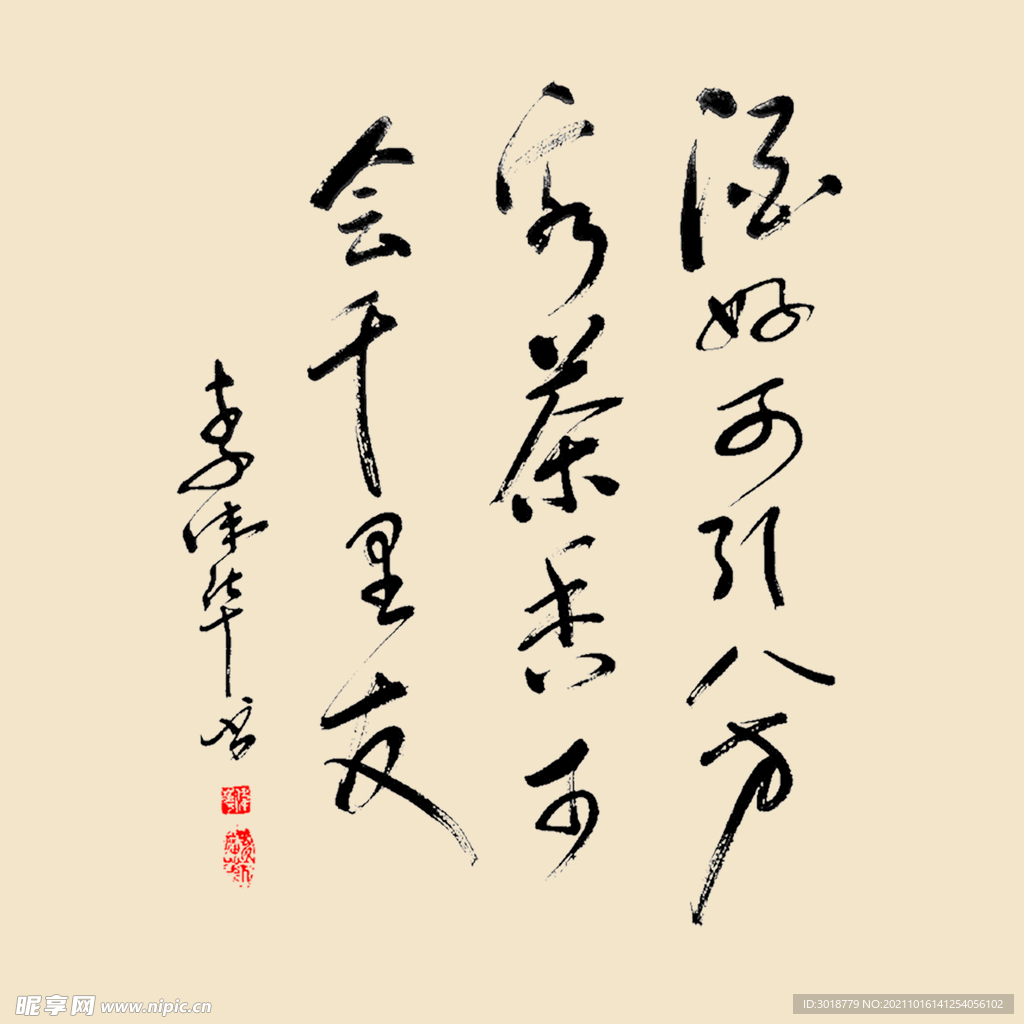 酒好可引八方
客茶香可
会千里友
李伟华书
昵享网 www.nipic.cn
ID:3018779 NO:20211016141254056102